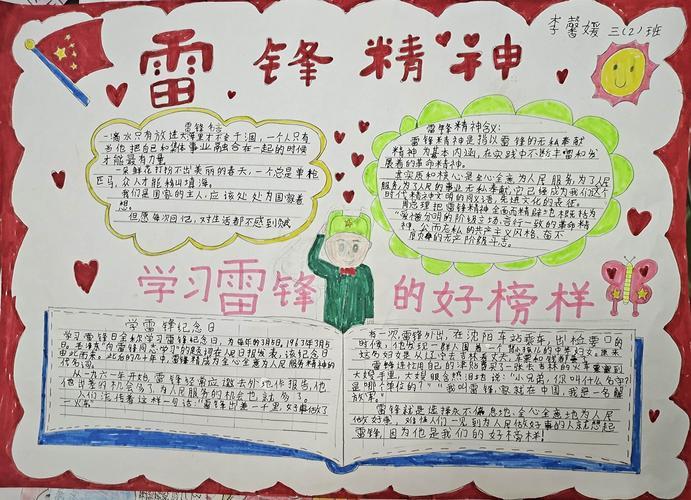 李馨媛 三(2)班
雷锋精神
雷锋名言
一滴水只有放进大海里才不会干涸，一个人只有
当他把自己和集体事业融合在一起的时候
才能最有力量
一朵鲜花打扮不出美丽的春天，一个人总是单枪
匹马，众人才能移山填海。
我们是国家的主人，应该处处为国家着
想。
但愿每次回忆，对生活都不感到
雷锋精神含义：
雷锋精神是指以雷锋的无私奉献
精神为基本内涵，在实践中不断丰富和发
展着的革命精神，
其实质和核心是全心全意为人民服务，为了人民
的事业无私奉献，它已经成为我们这个
时代精神文明的同义语，先进文化的表征。
周总理把雷锋精神全面而精辟地概括为
“爱憎分明的阶级立场、言行一致的革命精
神、公而无私的共产主义风格、奋不
顾身的无产阶级斗志。
学习雷锋 的好榜样
学雷锋纪念日
学习雷锋日全称学习雷锋纪念日，为每年的3月5日，1963年3月5
日，毛泽东“向雷锋同志学习”的题词在人民日报发表，该纪念日
由此而来，此后的几十年中，雷锋精神成为全心全意为人民服务精神的
代名词。
从一九六一年开始，雷锋经常应邀去外地作报告，他
出差的机会多了，为人民服务的机会也就多了，
人们流传着这样一句话：“雷锋出差一千里，好事做了
一火车
有一次雷锋外出，在沈阳车站乘车，出检票口的
时候，
雷锋
大嫂
是哪个单位的！”“我叫雷锋，家就在中国，我是一名解
放军。”
雷锋就是这样永不停息地、全心全意地为人民
做好事，难怪人们一见到为人民做好事的人就想起
雷锋，因为他是我们的好榜样！